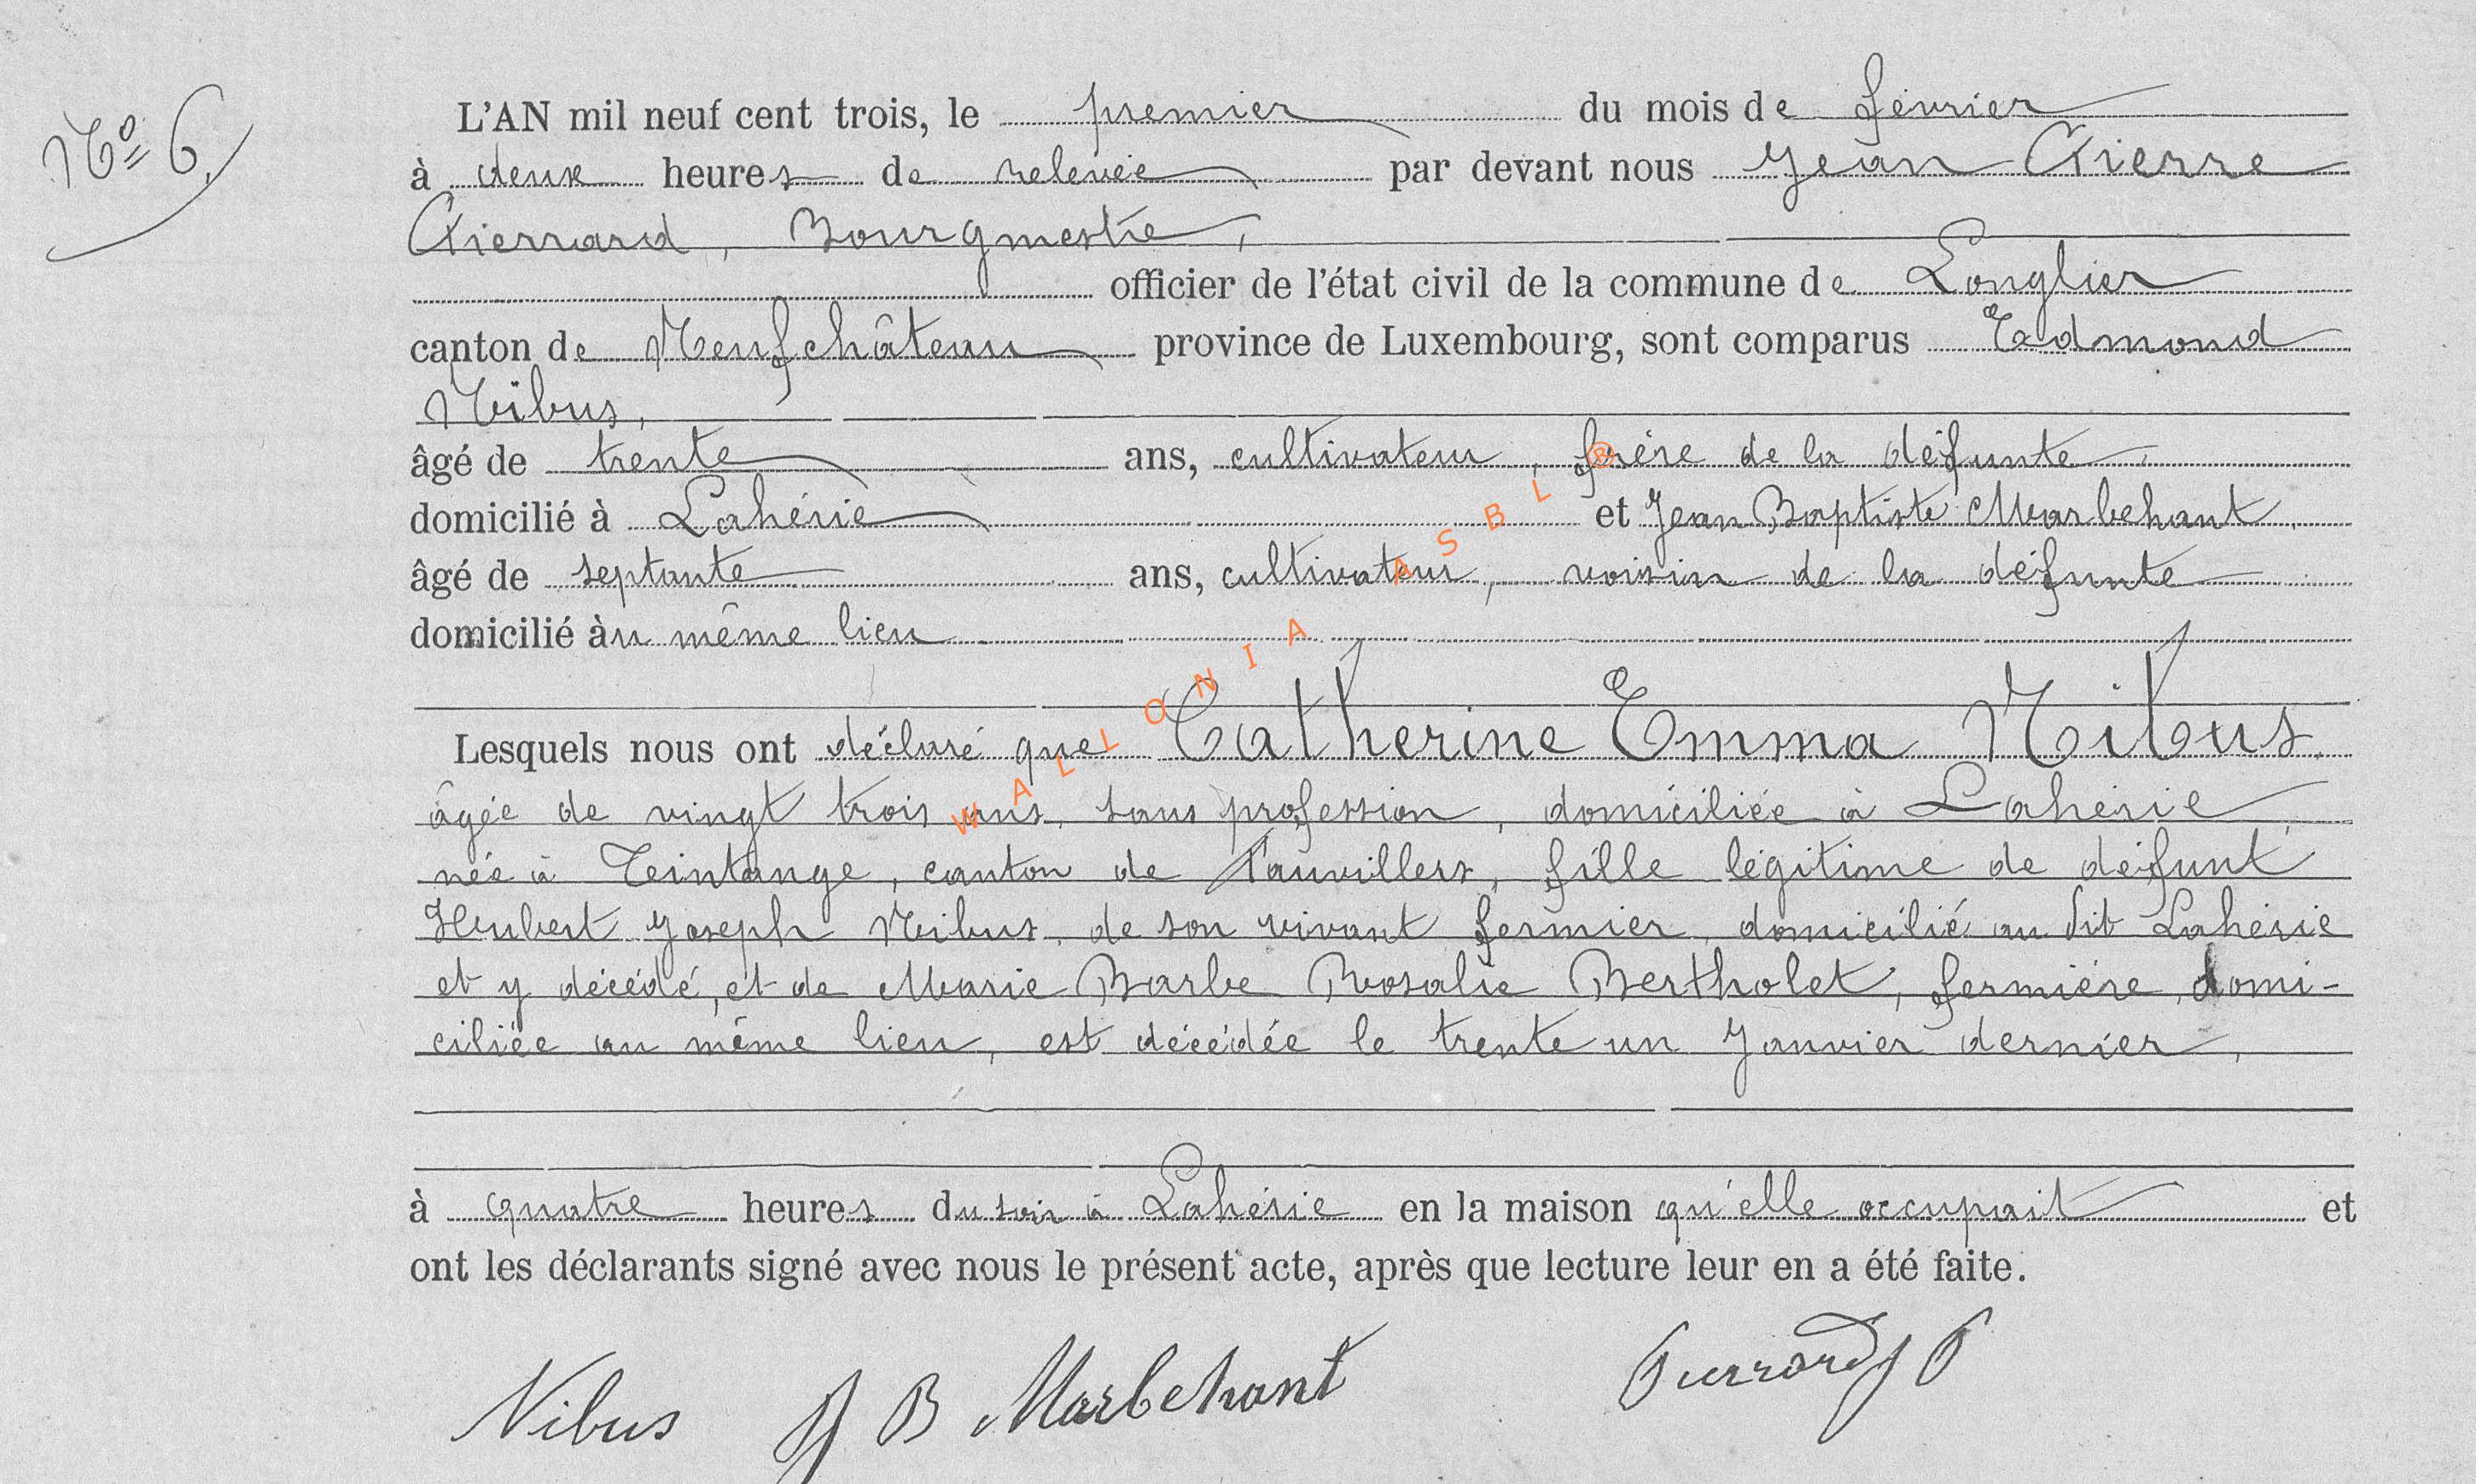 Nº 6
L'AN mil neuf cent trois, le premier du mois de février
à deux heures de relevée par devant nous Jean Pierre
Pierrard, Bourgmestre,
officier de l'état civil de la commune de Longlier
canton de Neufchâteau province de Luxembourg, sont comparus Edmond
Nibus,
âgé de trente ans, cultivateur, frère de la défunte,
domicilié à Lahérie et Jean Baptiste Marbehant
âgé de septante ans, cultivateur, voisin de la défunte
domicilié au même lieu
Lesquels nous ont déclaré que Catherine Emma Nibus
âgée de vingt trois ans, sans profession, domiciliée à Lahérie,
née à Teintange, canton de Fauvillers, fille légitime de défunt
Hubert Joseph Nibus, de son vivant fermier, domicilié au dit Lahérie
et y décédé, et de Marie Barbe Rosalie Bertholet, fermière, domi-
ciliée au même lieu, est décédée le trente un Janvier dernier,
à quatre heures du soir à Lahérie en la maison qu'elle occupait et
ont les déclarants signé avec nous le présent acte, après que lecture leur en a été faite.
Nibus J B Marbehant Pierrard J P
WALLONIA ASBL ®